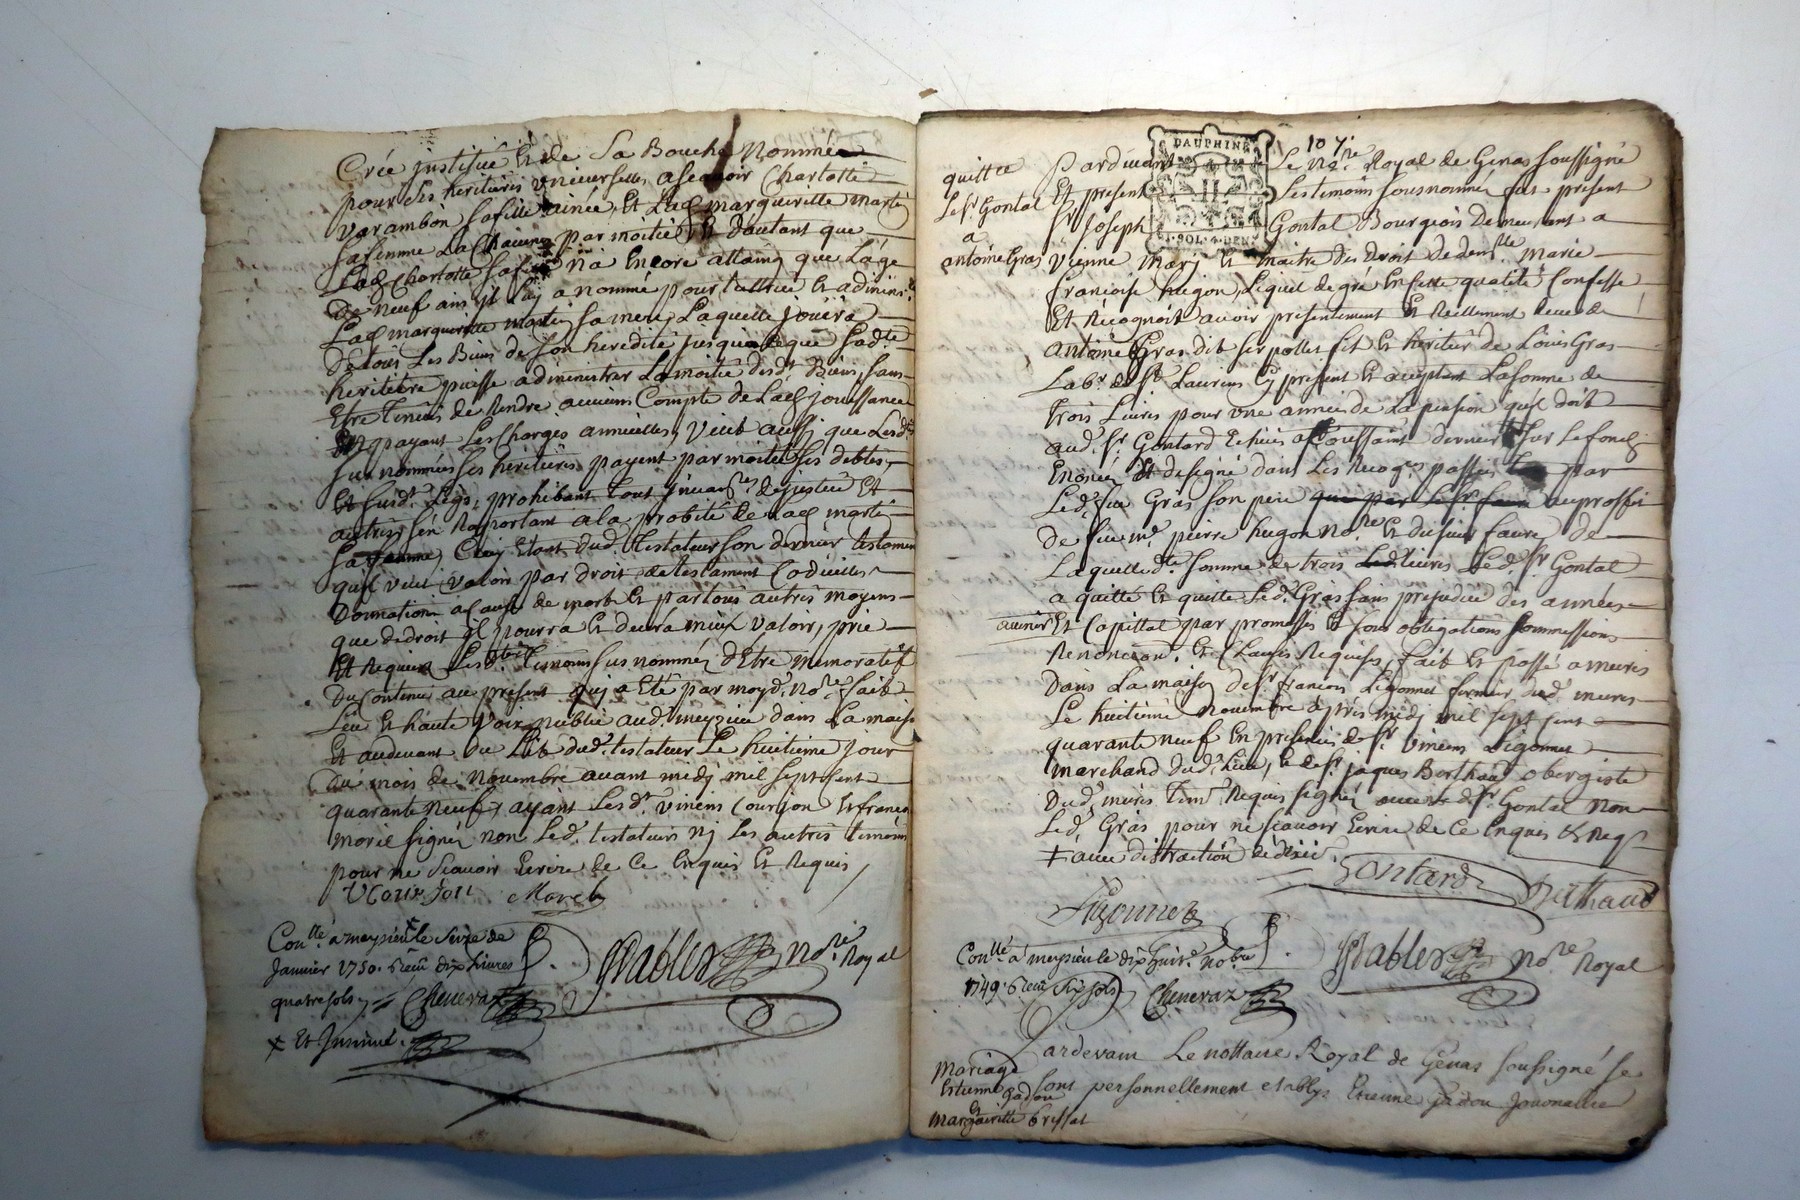 Crée institué et de Sa Bouche Nommée
pour ses heritieres universelles, ascavoir Charlotte
varambon sa fille ainée, et Lad. marguerite martin
sa femme par moitié, et Dautant que
Lad. Charlotte sa fille n'a Encore attaing que L'age
De neuf ans il luy a nommé pour tuttrice et administ.
Lad. marguerite martin sa mere, Laquelle jouira
De tous Les Biens de son heredité jusqu'a ce que sad.te
heritiere puisse administrer La moitié desd. Biens, sans
Etre tenüe de Rendre aucuns Compte de Lad. jouissance
En payant Les Charges annuelles, veut aussi que Lesd.
sus nommées ses heritieres payent par moitié ses debtes,
Et susd. Legs, prohibant tout de justice Et
autres, s'en Raportant a la probité de Lad. martin
sa femme, Cecy Etant dud. testateur son dernier testament
quil veut valoir par droit de testament Codicille
Donnation a Cause de mort et par tous autres moyens
que de droit il pourra et devra mieux valoir, prie
Et Requiert Lesd. temoins sus nommés d'Etre memoratifs
Du Contenu au present quy a Eté par moyd. no.re fait
Leu et haute voix publié aud. meyzieu dans La maison
Et audevant du Lit dud. testateur Le huitieme jour
du mois de Novembre avant midy mil sept cent
quarante neuf, ayant Lesd. vincens Courjon et francois
morel signés non Led. testateur nj Les autres temoins
pour ne scavoir Ecrire de Ce Enquis Et Requis
VCourjon Morel
Con.llé a meyzieu le seize de
Janvier 1750. Receu dix livres
quatre sols Cheneraz
No.re Royal
+ Et Insinué.
107
DAUPHINÉ
quitte
Le Sr. Gontal
a
antoine Gras
Pardevant Le No.re Royal de Genas soussigné
Et present Les temoins sousnommés fut present
Sr. Joseph Gontal Bourgeois Demeurant a
Vienne mary et maitre des Droit de dem.lle marie
francoise hugon, Lequel de gré En sette qualité Confesse
Et Recognoit avoir presentement et Reellement Receu de
antoine Gras dit serpollet fils et heritier de Louis Gras
Lab.r de St. Laurens Cy present et aceptant La somme de
trois Livres pour une année de La pension quil doit
aud. Sr. Gontard Echüe a Toussaint dernier sur Le fond
Enoncé et designé dans Les Recog.s passées par
Led. feu Gras son pere que par auproffit
de feu m.e pierre hugon No.re et du sieur faure de
Laquelle d.te somme de trois livres Led. Sr. Gontal
a quitté et quitte Led. Gras sans prejudice des années
avenir Et Capittal par promesses et sous obligations soummissions
Renonciaon. et Clauses Requises, fait Et passé a mures
Dans La maison de Sr. francois Ligonnet fermier dud. mures
Le huitieme novembre apres midy mil sept cent
quarante neuf En presence de Sr. vincens Ligonnet
marchand dud. Lieu, et de Sr. jaques Berthaud obergiste
Dud. mures tem.s Requis signés avec Led. Sr. Gontal non
Led. Gras pour ne scavoir Ecrire de Ce Enquis et Req.
+ avec distraction
Gontard Berthaud
Ligonnet
Con.llé a meyzieu le dix huit.e no.bre
1749. Receu six sols Cheneraz
No.re Royal
Mariage
Estienne gadou
et
Margueritte brissat
Pardevant Le nottaire Royal de Genas soussigné se
sont personnellement etablys Etienne gadou